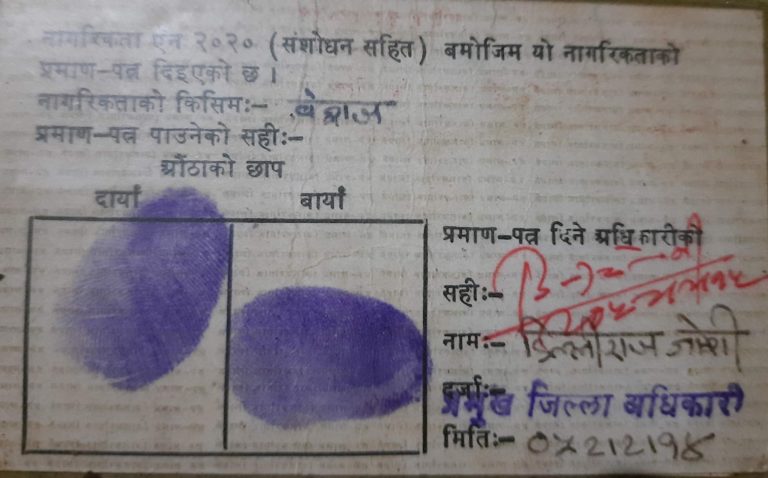 नागरिकता एन २०२० (संशोधन सहित) बमोजिम यो नागरिकताको
प्रमाण-पत्र दिइएको छ ।
नागरिकताको किसिम:- वंशज
प्रमाण-पत्र पाउनेको सही:-
औंठाको छाप
दायाँ बायाँ
प्रमाण-पत्र दिने अधिकारीको
सही:-
नाम:- डिल्लीराज जोशी
दर्जा:- प्रमुख जिल्ला अधिकारी
मिति:-